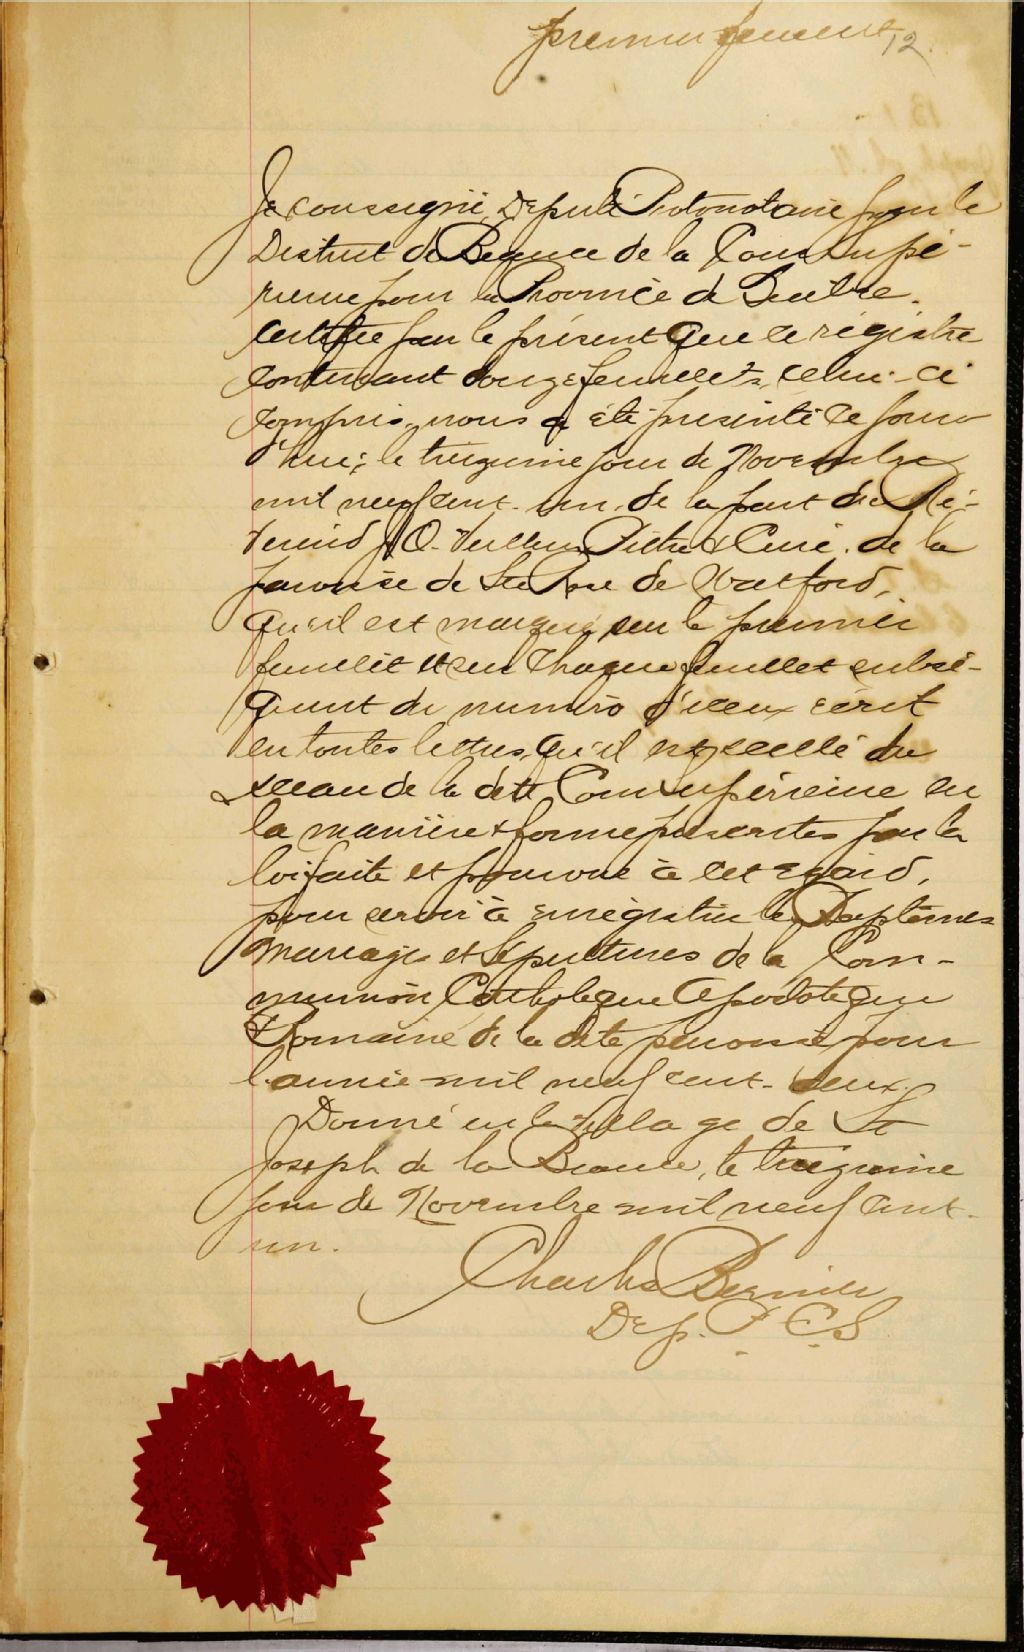 premier feuillet 12
Je soussigné, Député Protonotaire pour le
District de Beauce de la Cour Supé-
rieure pour la Province de Québec.
certifie par le présent que ce régistre
contenant douze feuillets, celui-ci
compris, nous a été présenté ce jour
d'hui; le treizième jour de Novembre
mil neuf cent un, de la part du Ré-
vérend J. O. Prêtre & Curé de la
paroisse de Ste Rose de Watford,
Qu'il est marqué sur le premier
feuillet et sur chaque feuillet subsé-
quent du numéro d'iceux écrit
en toutes lettres, qu'il est scellé du
sceau de la dite Cour Supérieure en
la manière & forme prescrites par la
loi faite et pourvue à cet égard,
pour servir à enrégistrer les Baptêmes
Mariages et Sépultures de la Com-
munion Catholique Apostolique
& Romaine de la dite paroisse pour
l'année mil neuf cent deux.
Donné en le Village de St
Joseph de la Beauce, le treizième
jour de Novembre mil neuf cent
un.
Charles Bernier
Dep. P. C. S